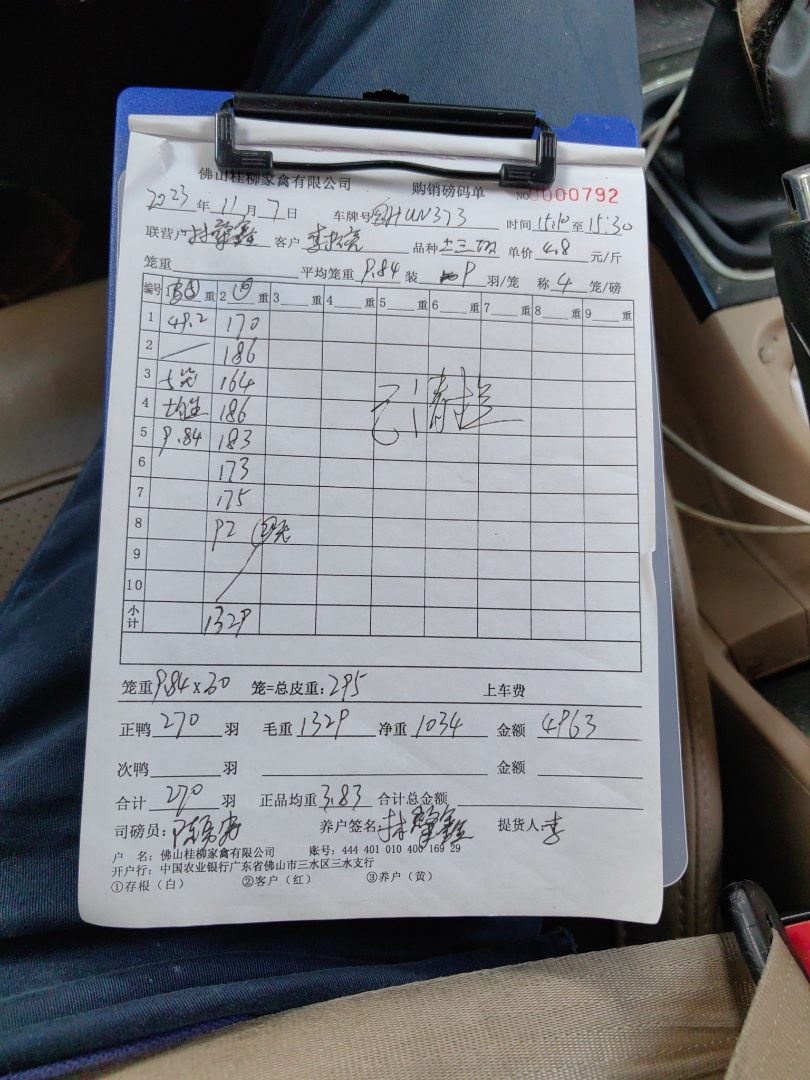 佛山桂柳家禽有限公司 购销磅码单 NO 0000792
2023年 11月 7日 车牌号 HUN373 时间 15:10 至 15:30
联营户 林 鑫 客户 李 亮 品种 土三 单价 4.8 元/斤
笼重 平均笼重 9.84 装 9 羽/笼 称 4 笼/磅
编号 1 重 2 ④ 重 3 重 4 重 5 重 6 重 7 重 8 重 9 重
1 49.2 170
2 186
3 5笼 164
4 186
5 9.84 183
6 173
7 175
8 92 ②
9
10
小计 1329
已清
笼重 9.84 x 30 笼=总皮重: 295 上车费
正鸭 270 羽 毛重 1329 净重 1034 金额 4963
次鸭 羽 金额
合计 270 羽 正品均重 3.83 合计总金额
司磅员: 陈 养户签名: 林 鑫 提货人: 李
户 名: 佛山桂柳家禽有限公司 账号: 444 401 010 400 169 29
开户行: 中国农业银行广东省佛山市三水区三水支行
①存根（白） ②客户（红） ③养户（黄）